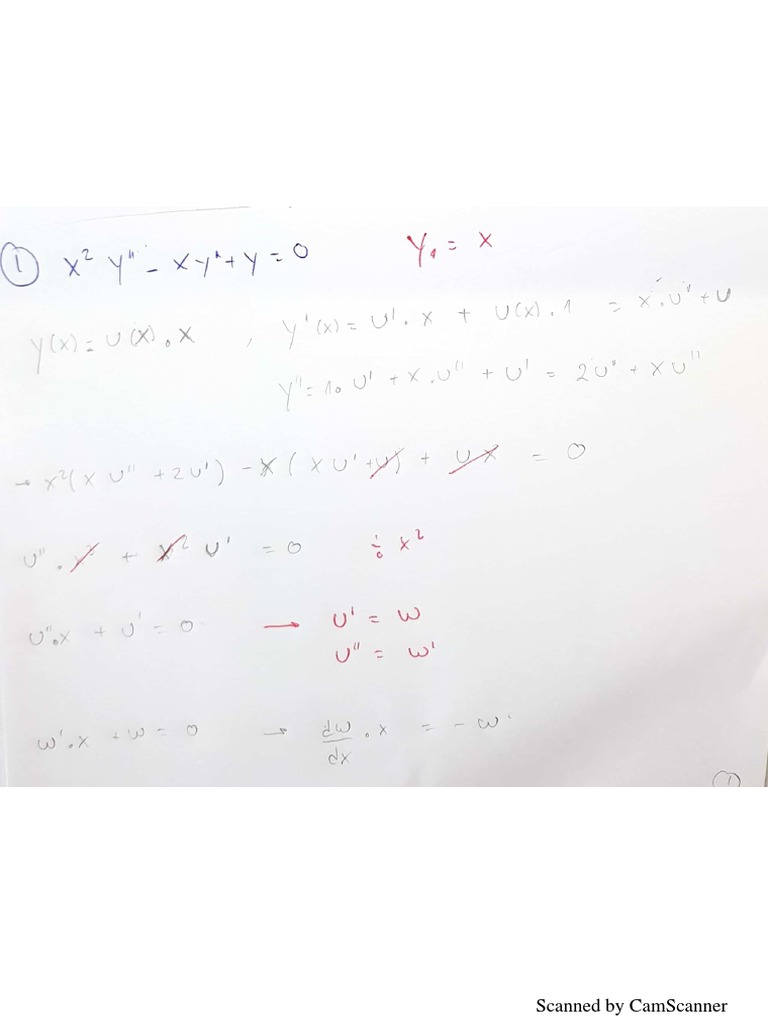 ① x² y'' - xy' + y = 0    y₁ = x
y(x) = U(x) · x , y'(x) = U' · x + U(x) · 1 = x · U' + U
y'' = 1 · U' + x · U'' + U' = 2U' + xU''
→ x²(xU'' + 2U') - x(xU' + U) + Ux = 0
U'' · x³ + x² U' = 0    ÷ x²
U'' · x + U' = 0 → U' = w
U'' = w'
w' · x + w = 0 → dw/dx · x = - w
①
Scanned by CamScanner